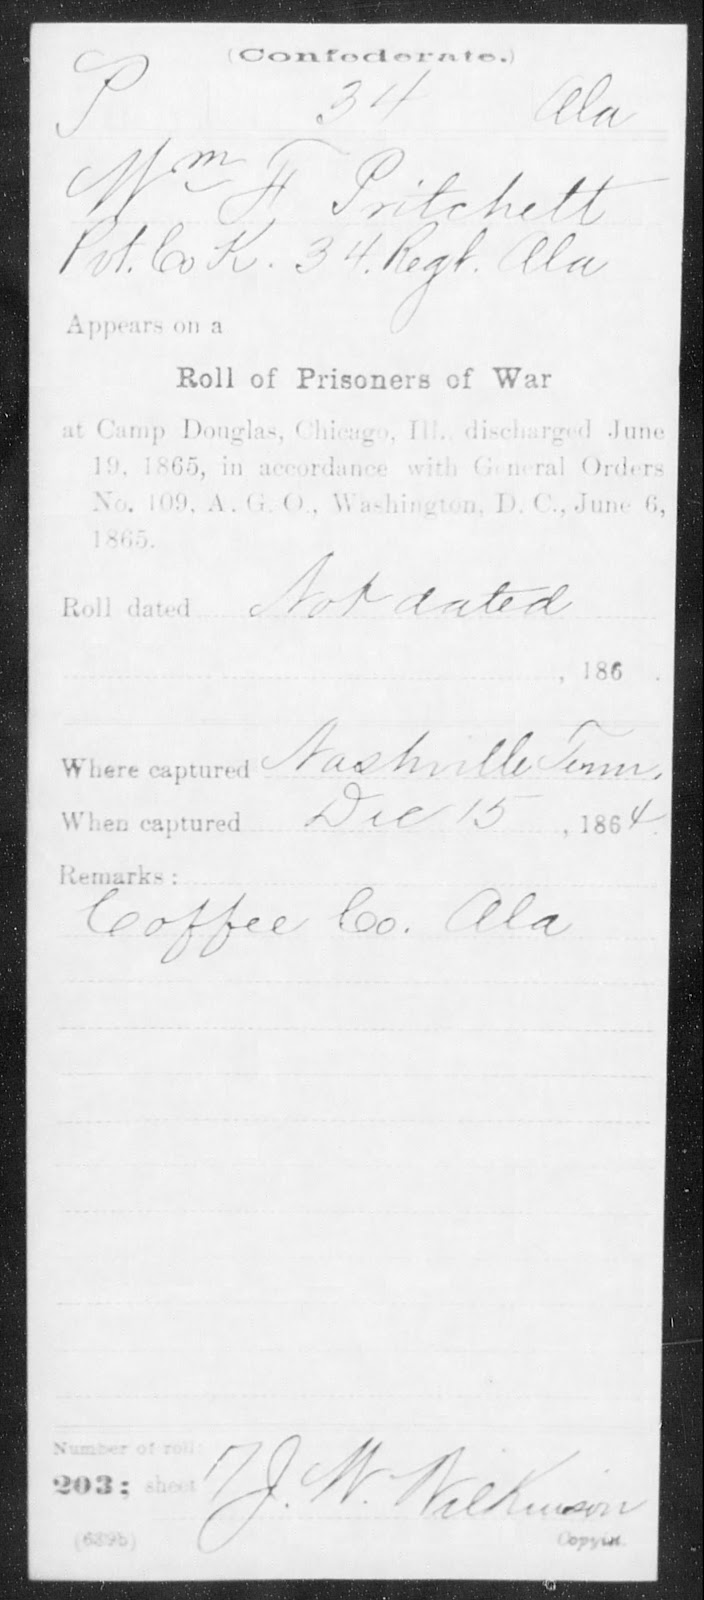 (Confederate.)
P 34 Ala
Wm F Pritchett
Pvt. Co K. 34. Regt. Ala
Appears on a
Roll of Prisoners of War
at Camp Douglas, Chicago, Ill., discharged June
19, 1865, in accordance with General Orders
No. 109, A. G. O., Washington, D. C., June 6,
1865.
Roll dated Not dated
, 186 .
Where captured Nashville Tenn.
When captured Dec 15, 1864.
Remarks:
Coffee Co. Ala
Number of roll:
203; sheet 7 J. W. Wilkinson
(639b) Copyist.